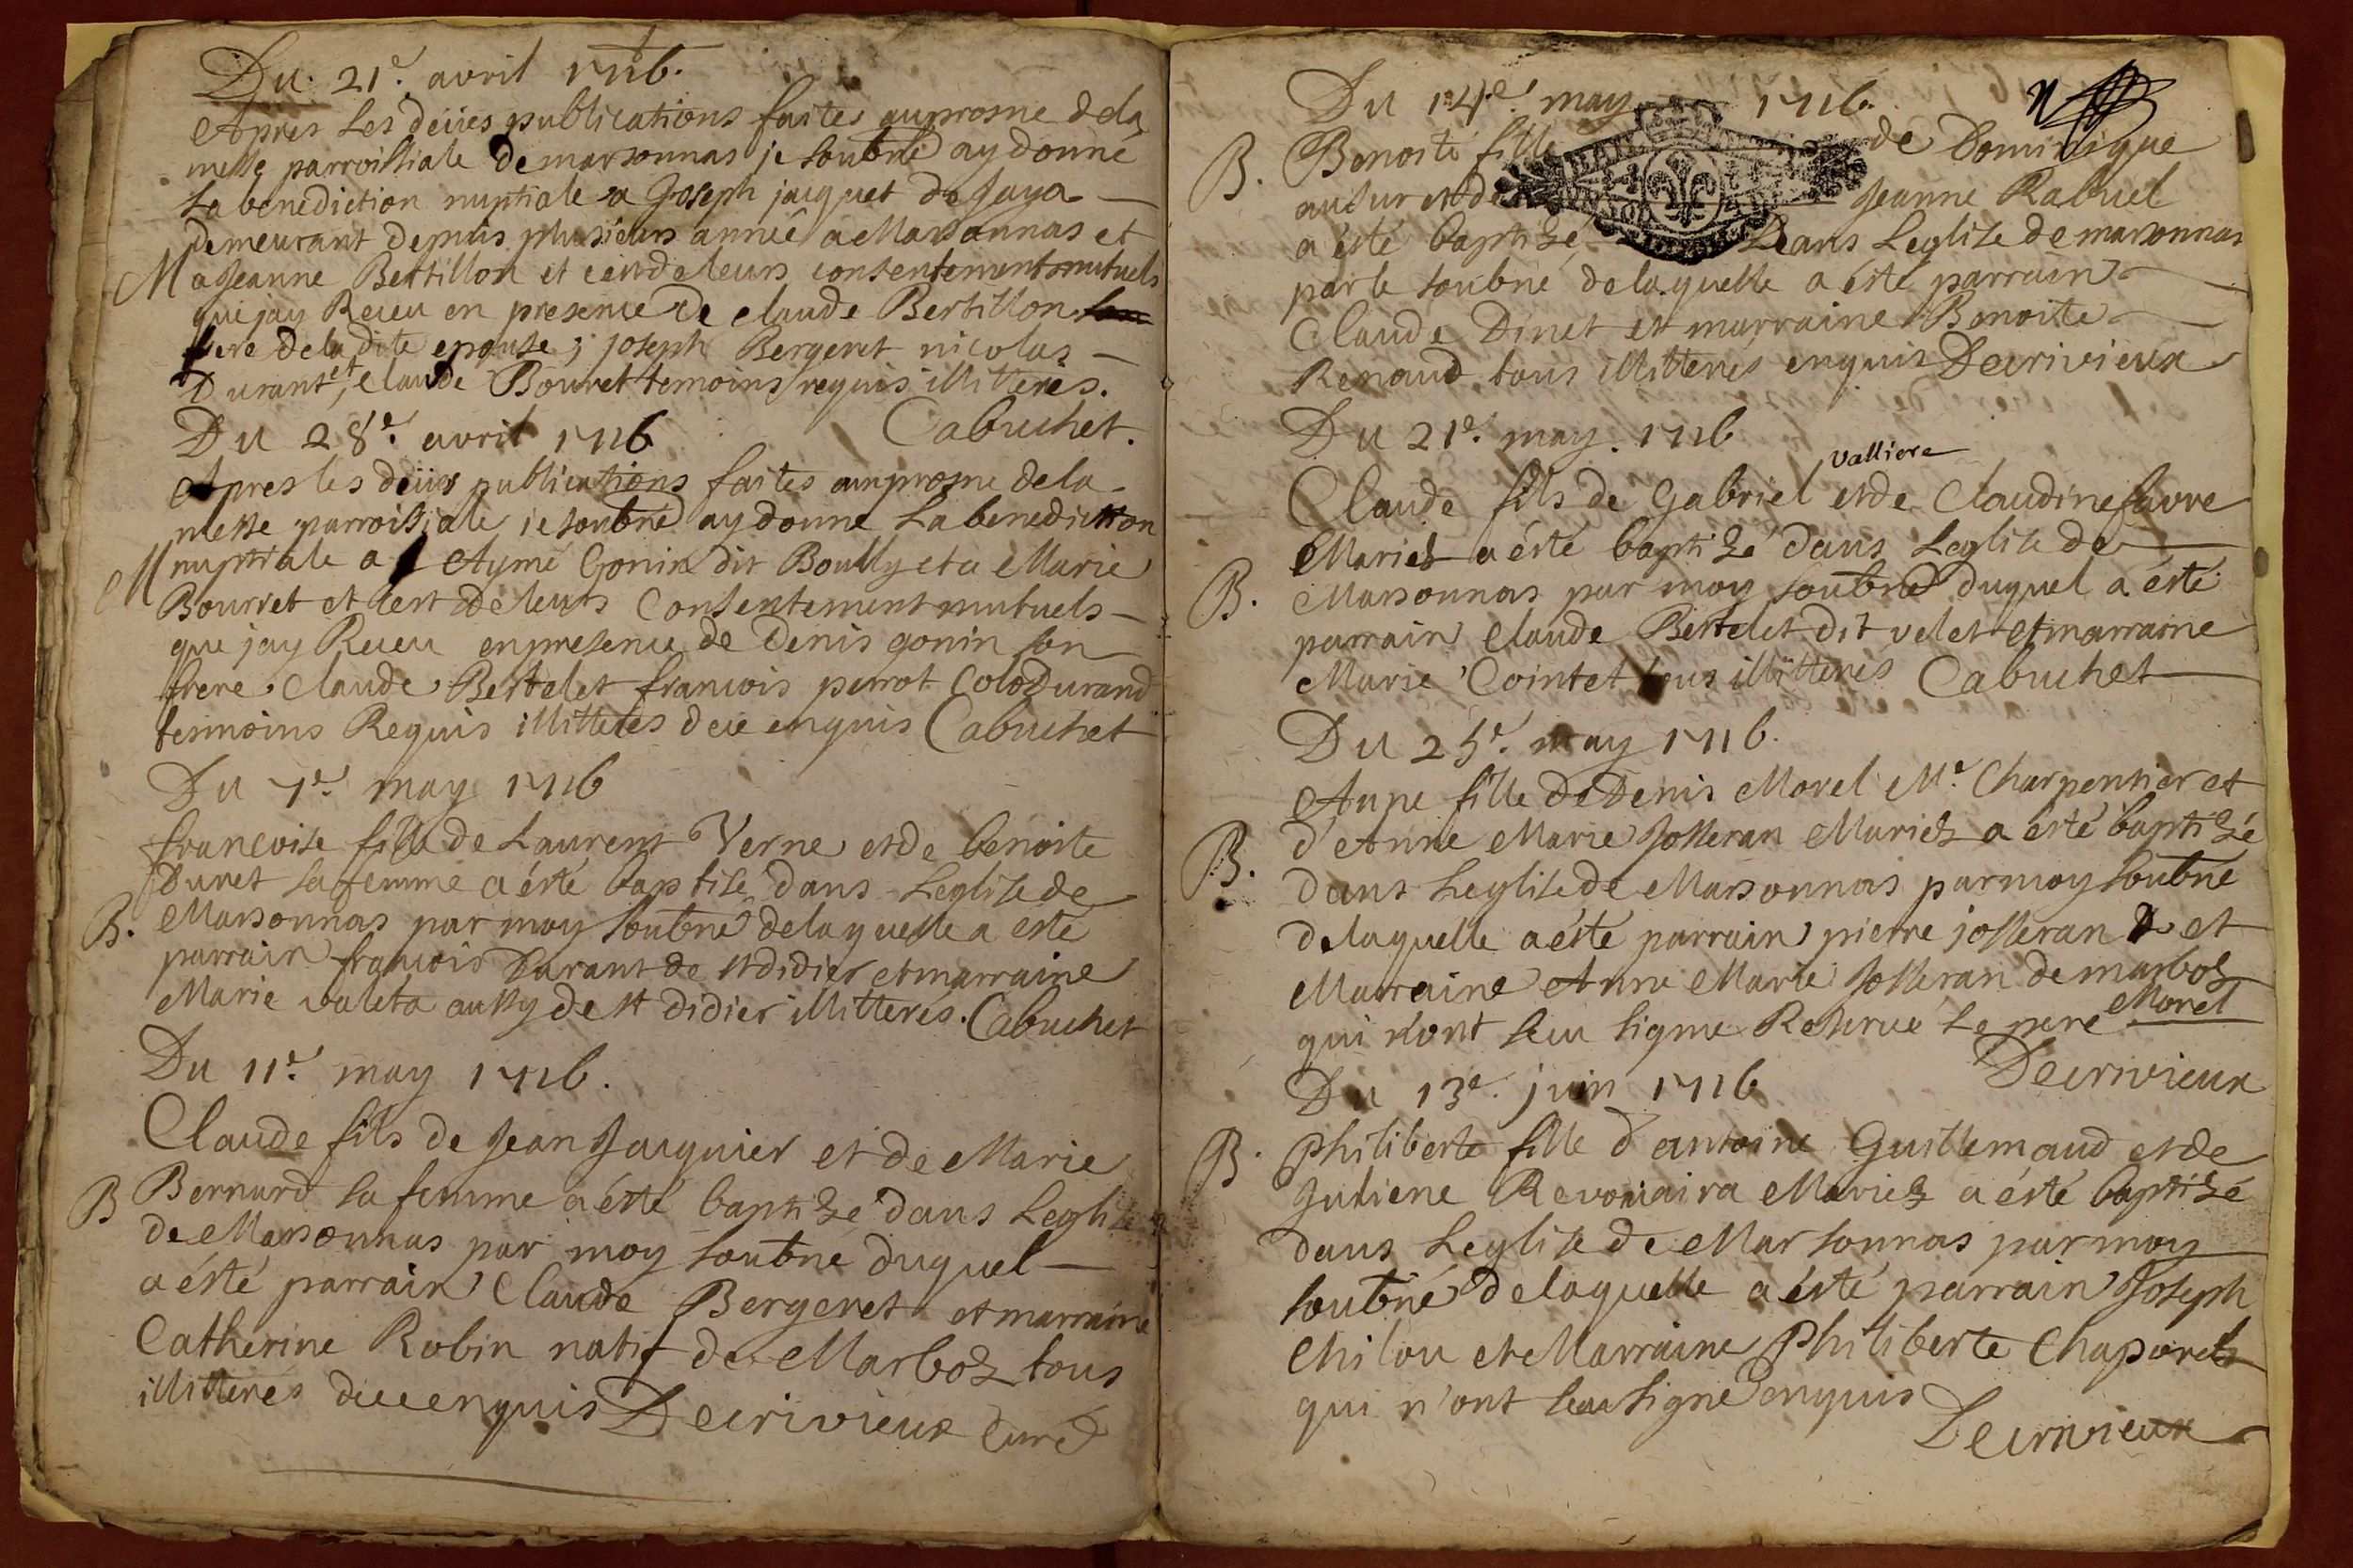 Du 21e. avril 1716.
Apres les deües publications faites au prosne de la
messe parroissiale de marsonnas je soubné ay donné
la benediction nuptiale a Joseph jacquet de Jaya
demeurant depuis plusieurs anneé a Marsonnas et
M a Jeanne Bertillon et ce de leurs consentement mutuels
que jay Receu en presence de claude Bertillon
frere de la dite epouse; joseph Bergeret nicolas
Durant, et claude Bouvet temoins requis illitteres.
Cabuchet.
Du 28e. avril 1716
Apres les deües publications faites au prosne de la
messe parroissiale je soubné ay donne la benediction
M nuptiale a Aymé Gonin dit Boully et a Marie
Bourret et cest de leurs Consentement mutuels
que jay Receu en presence de Denis gonin son
frere, claude Bertelet francois perrot Colo Durand
temoins Requis illitterés de ce enquis Cabuchet
Du 7e. may 1716
francoise fille de Laurent Verne et de benoite
Duret sa femme a ésté baptisé dans Leglise de
B. Marsonnas par moy soubné de laquelle a esté
parrain francois Durant de st didier et marraine
Marie valeta aussy de st didier illitterés. Cabuchet
Du 11e. may 1716.
Claude fils de Jean Jacquier et de Marie
B Bernard sa femme a ésté baptizé dans Leglise
de Marsonnas par moy soubné duquel
a ésté parrain Claude Bergeret et marraine
Catherine Robin natif de Marboz tous
illitterés de ce enquis Decrivieux curé
Du 14e. may 1716.
B. Benoite fille de Dominique
et de Jeanne Rabuel
a ésté baptizé dans Leglise de marsonnas
par le soubné de laquelle a ésté parrain
Claude Dinet et marraine Benoite
Renaud tous illitterés enquis Decrivieux
Du 21e. may. 1716
valliere
Claude fils de Gabriel et de Claudine favre
Mariés a ésté baptizé dans Leglise de
B. Marsonnas par moy soubné duquel a ésté
parrain claude Bertelet dit velet et marraine
Marie Cointet tous illitterés Cabuchet
Du 25e. may 1716.
Anne fille de Denis Morel Me. Charpentier et
d'Anne Marie Josseran Mariez a ésté baptizé
B. dans Leglise de Marsonnas par moy soubné
de laquelle a ésté parrain pierre josseran et
Marraine Anne Marie Josseran de marboz
qui n'ont sceu signe Reserve le pere Morel
Decrivieux
Du 13e. juin 1716
B. philiberte fille d'antoine Guillemaud et de
Juliene Revomaira Mariez a ésté baptizé
dans Leglise de Marsonnas par moy
soubné de laquelle a ésté parrain Joseph
Chilou et Marraine Philiberte Chaparel
qui n'ont sceu signé enquis
Decrivieux